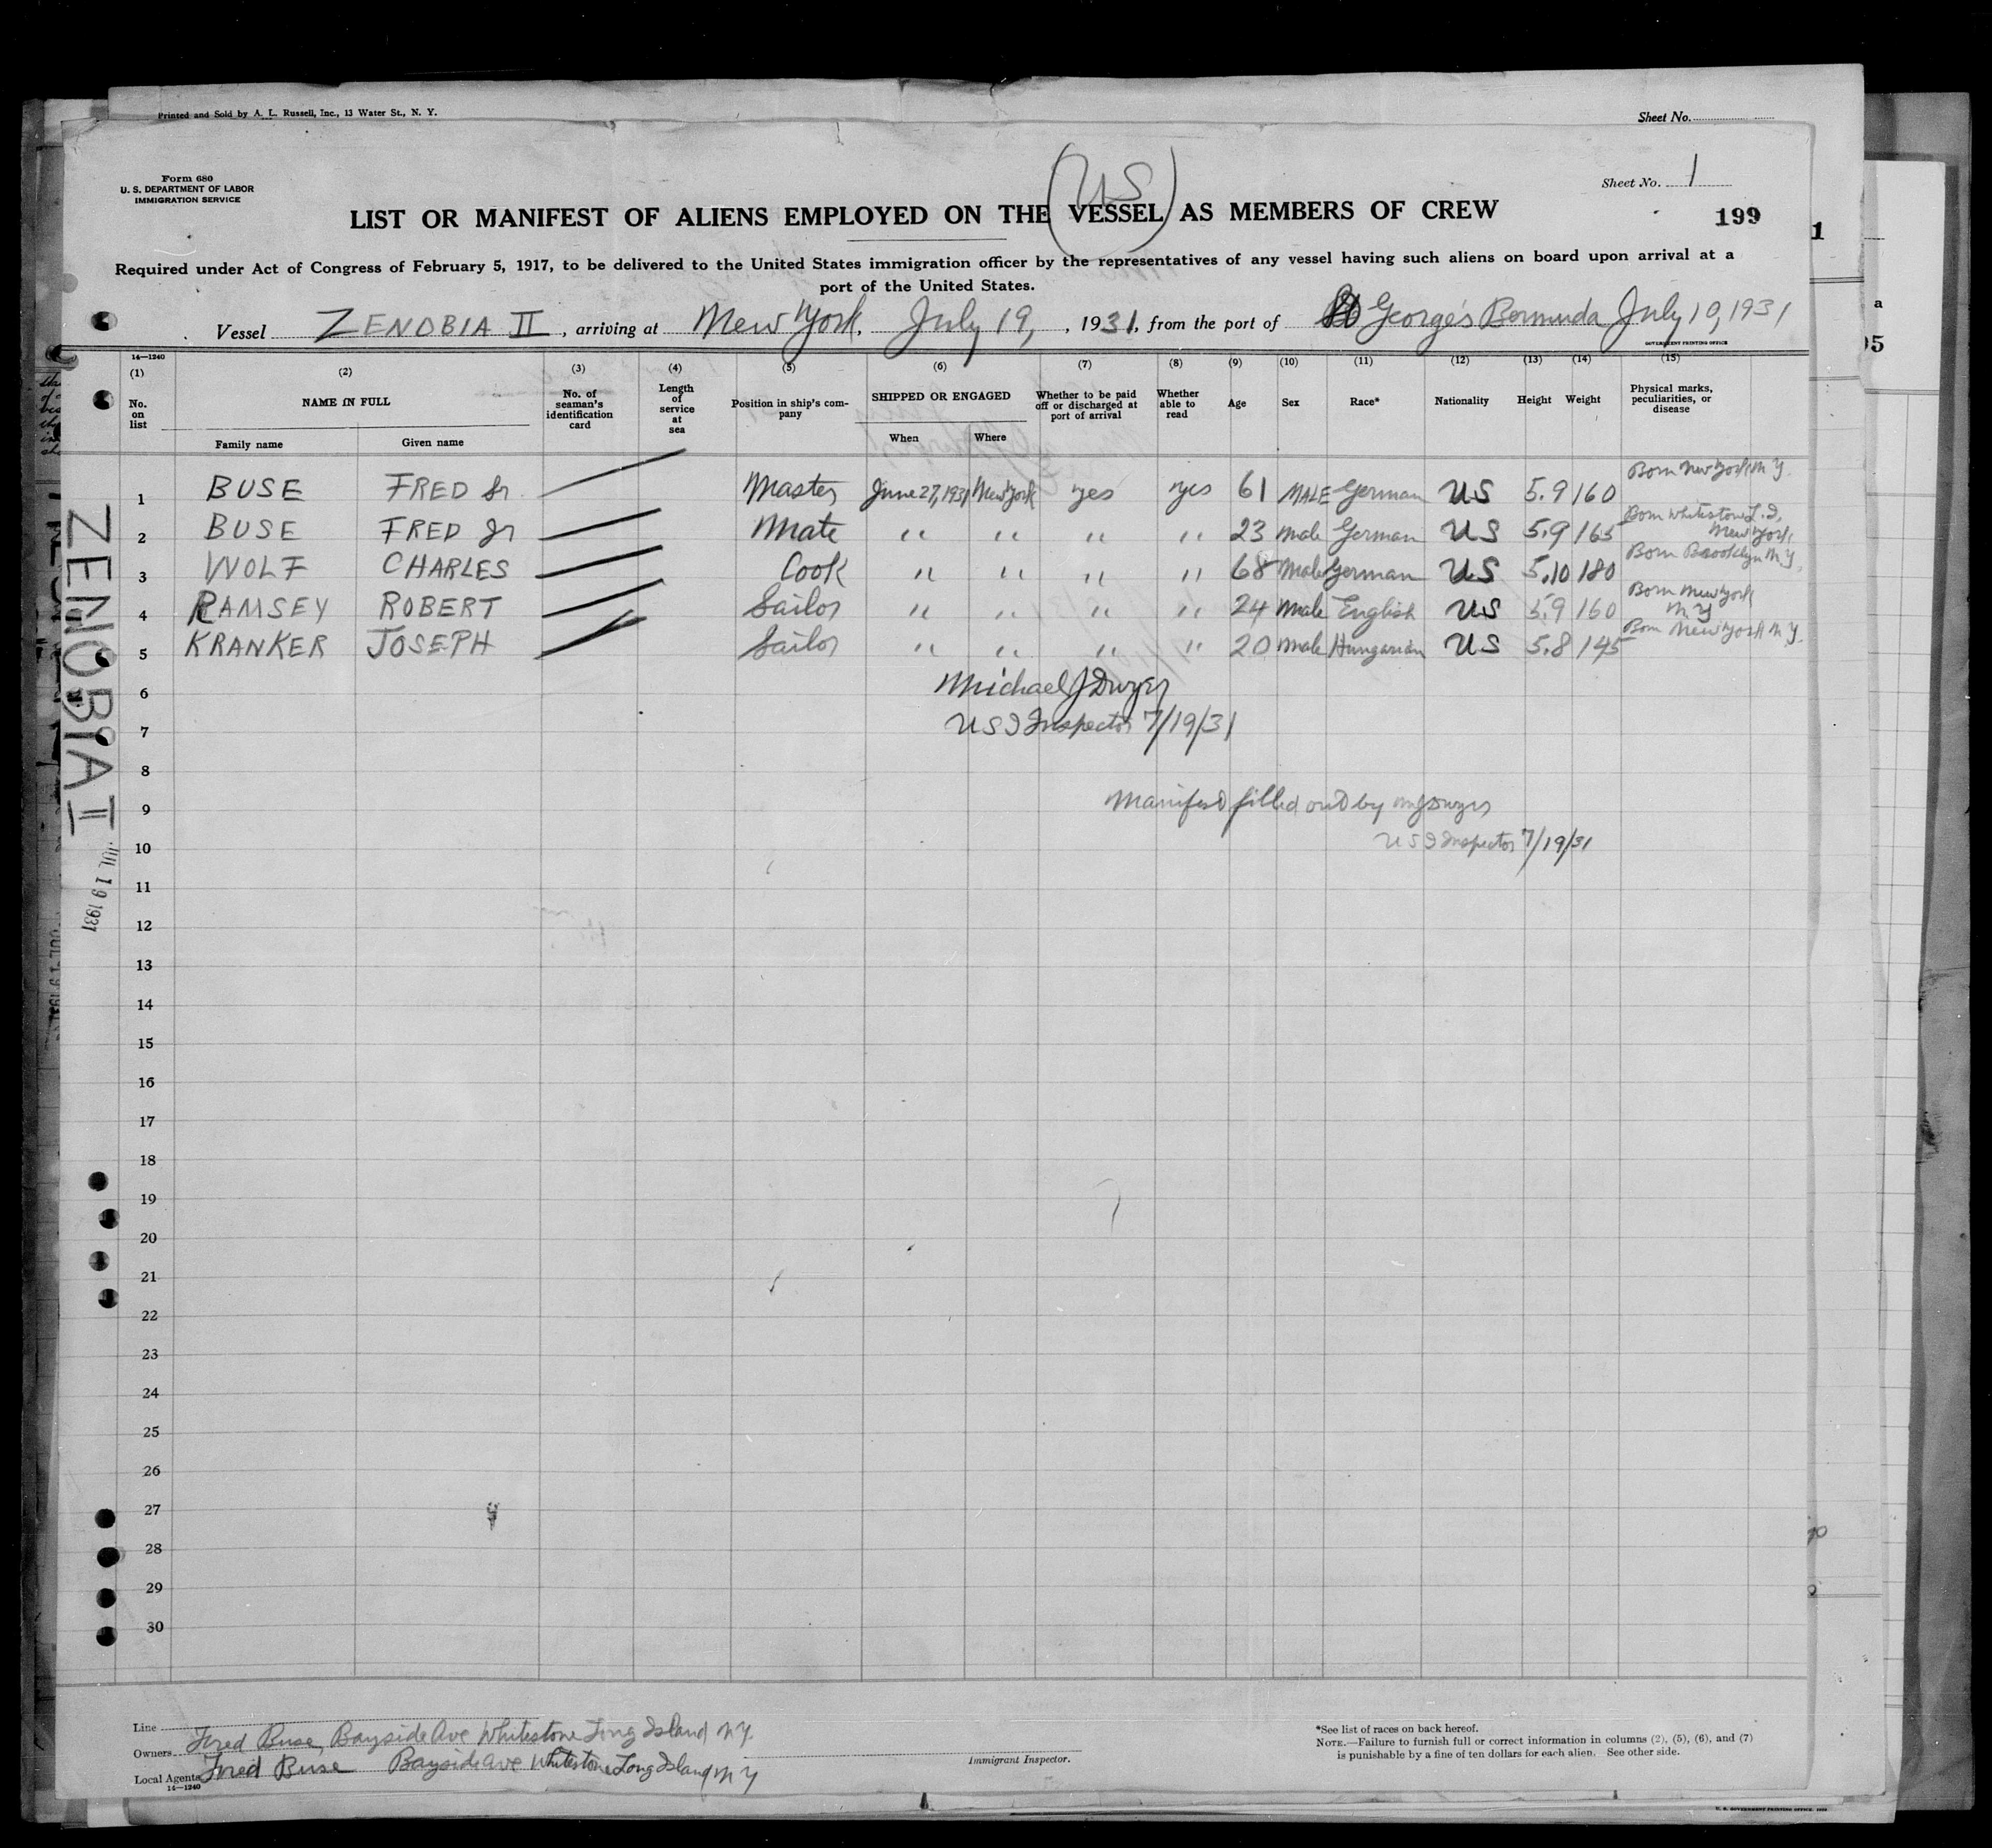 Printed and Sold by A. L. Russell, Inc., 13 Water St., N. Y.
Sheet No.
Form 680
U. S. DEPARTMENT OF LABOR
IMMIGRATION SERVICE
(US)
Sheet No. 1
LIST OR MANIFEST OF ALIENS EMPLOYED ON THE VESSEL AS MEMBERS OF CREW
199
1
Required under Act of Congress of February 5, 1917, to be delivered to the United States immigration officer by the representatives of any vessel having such aliens on board upon arrival at a
port of the United States.
a
Vessel ZENOBIA II, arriving at New York, July 19, , 1931, from the port of St George's Bermuda July 10, 1931
GOVERNMENT PRINTING OFFICE
95
14—1240
(1) (2) (3) (4) (5) (6) (7) (8) (9) (10) (11) (12) (13) (14) (15)
No. on list
NAME IN FULL
Family name
Given name
No. of seaman's identification card
Length of service at sea
Position in ship's company
SHIPPED OR ENGAGED
When
Where
Whether to be paid off or discharged at port of arrival
Whether able to read
Age
Sex
Race*
Nationality
Height
Weight
Physical marks, peculiarities, or disease
1 BUSE FRED Sr. Master June 27, 1931 New York yes yes 61 MALE German US 5.9 160 Born New York N Y.
2 BUSE FRED Jr Mate " " " " 23 Male German US 5.9 165 Born Whitestone L.I, New York
3 WOLF CHARLES Cook " " " " 68 Male German US 5.10 180 Born Brooklyn N Y.
4 RAMSEY ROBERT Sailor " " " " 24 Male English US 5.9 160 Born New York N Y
5 KRANKER JOSEPH Sailor " " " " 20 Male Hungarian US 5.8 145 Born New York N Y.
6 Michael J Dwyer
7 U S I Inspector 7/19/31
8
9 Manifest filled out by M J Dwyer
10 U S I Inspector 7/19/31
11
12
13
14
15
16
17
18
19
20
21
22
23
24
25
26
27
28
29
30
ZENOBIA II
JUL 19 1931
Line
Owners Fred Buse, Bayside Ave Whitestone Long Island N Y.
Local Agents Fred Buse Bayside Ave Whitestone Long Island N Y
14—1240
Immigrant Inspector.
*See list of races on back hereof.
NOTE.—Failure to furnish full or correct information in columns (2), (5), (6), and (7)
is punishable by a fine of ten dollars for each alien. See other side.